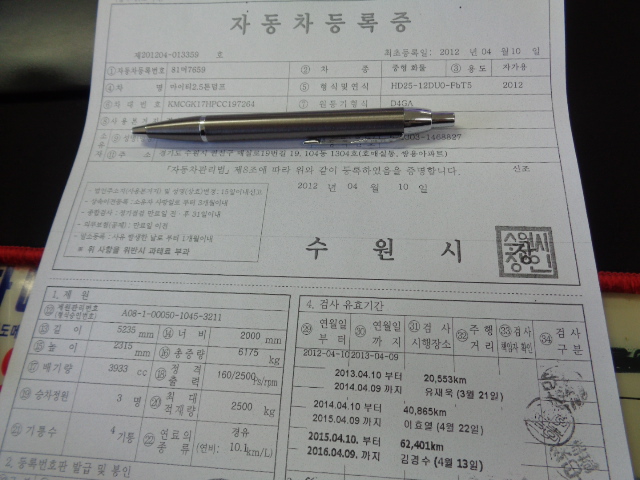 자동차등록증
제201204-013359 호
최초등록일: 2012 년 04 월 10 일
① 자동차등록번호 81어7659 ② 차 종 중형 화물 ③ 용도 자가용
④ 차 명 마이티2.5톤덤프 ⑤ 형식및연식 HD25-12DU0-FbT5 2012
⑥ 차 대 번 호 KMCGK17HPCC197264 ⑦ 원동기형식 D4GA
⑧ 사용본거지
-1468827
주 소 경기도 수원시 권선구 19번길 19, 104동 1304호(호매실동,
「자동차관리법」 제8조에 따라 위와 같이 등록하였음을 증명합니다. 신조
2012 년 04 월 10 일
15일이내신고
※ 위 사항을 위반시 과태료 부과
수 원 시
1. 제 원
제원관리번호 (형식승인번호) A08-1-00050-1045-3211
길 이 5235 mm ⑭ 너 비 2000 mm
⑮ 높 이 2315 mm ⑯ 총중량 6175 kg
⑰ 배기량 3933 cc ⑱ 정 격 출 력 160/2500 ps/rpm
⑲ 승차정원 3 명 ⑳ 최 대 적재량 2500 kg
㉑ 기통수 4 기통 ㉒ 연료의 종 류 경유 (연비: 10.1 km/L)
2. 등록번호판 발급 및 봉인
4. 검사 유효기간
㉙ 연월일 부터 ㉚ 연월일 까지 ㉛ 검 사 시행장소 ㉜ 주 행 거 리 ㉝ 검사 책임자 확인 ㉞ 검 사 구 분
2012-04-10 2013-04-09
2013.04.10 부터 20,553km
2014.04.09 까지 유재욱 (3월 21일)
2014.04.10 부터 40,865km
2015.04.09 까지 이효열 (4월 22일)
2015.04.10. 부터 62,401km
2016.04.09. 까지 김경수 (4월 13일)